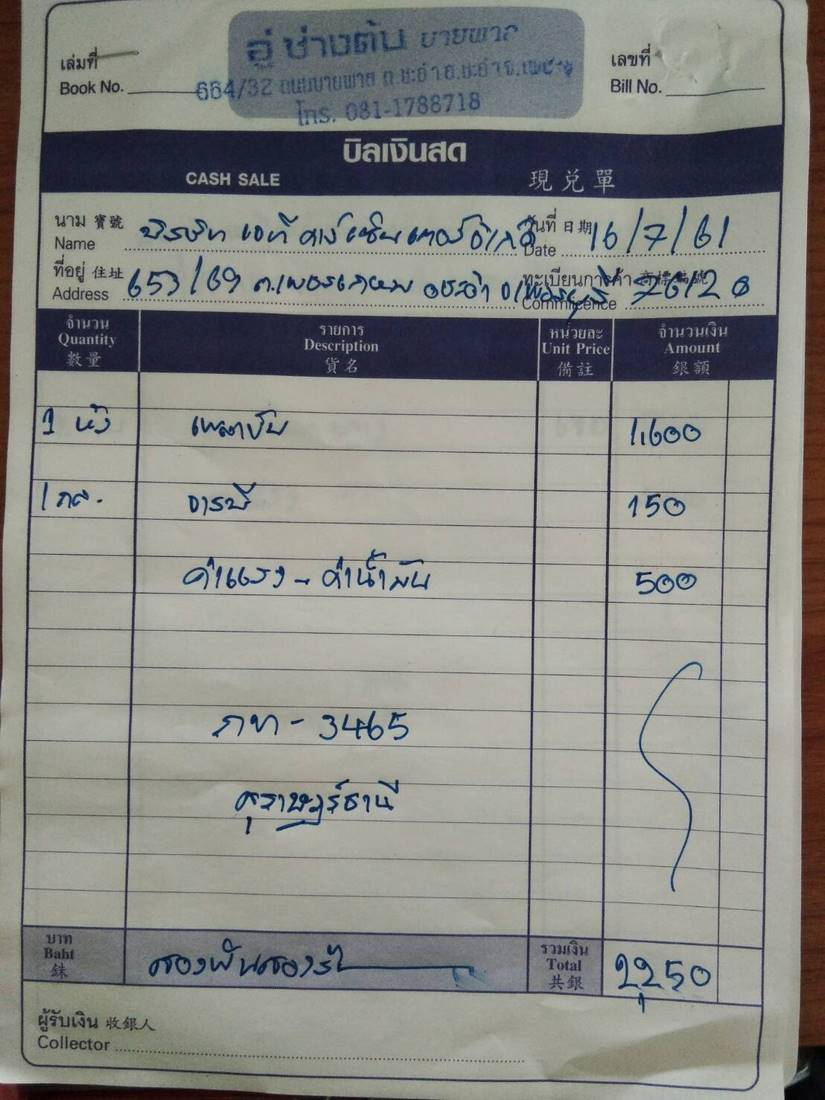 อู่ ช่างต้น บายพาส
664/32 ถนนบายพาส ต.ชะอำ อ.ชะอำ จ.เพชรบุรี
โทร. 081-1788718
เล่มที่
Book No.
เลขที่
Bill No.
บิลเงินสด
CASH SALE 現兑單
นาม 寶號
Name บริษัท เอที คาร์ เซ็นเตอร์ จำกัด
วันที่ 日期
Date 16/7/61
ที่อยู่ 住址
Address 653/69 ต.เพชรเกษม อ.ชะอำ จ.เพชรบุรี 76120
ทะเบียนการค้า
Commlicence
จำนวน รายการ หน่วยละ จำนวนเงิน
Quantity Description Unit Price Amount
數量 貨名 備註 銀額
1 เพลาขับ 1,600
1 กล. จารบี 150
ค่าแรง - ค่าน้ำมัน 500
กท - 3465
สุราษฎร์ธานี
บาท
Baht
銖
สองพันสองร้
รวมเงิน
Total
共銀
2,250
ผู้รับเงิน 收銀人
Collector